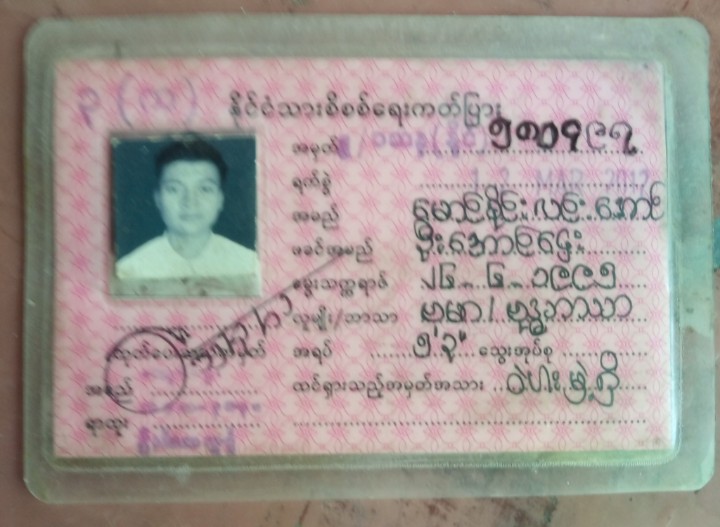 ၃ (လ)
နိုင်ငံသားစိစစ်ရေးကတ်ပြား
အမှတ် / ဝဆန(နိုင်)
ရက်စွဲ 12 MAR 2012
အမည် မောင်စိုင်းလင်းအောင်
ဖခင်အမည် ဦးအောင်ဌေး
မွေးသက္ကရာဇ် ၂၆-၆-၁၉၉၅
လူမျိုး/ဘာသာ ဗမာ/ဗုဒ္ဓဘာသာ
အရပ် ၅' ၃" သွေးအုပ်စု
ထင်ရှားသည့်အမှတ်အသား ဝဲပါးမှဲ့ရှိ
အမည်
ရာထူး